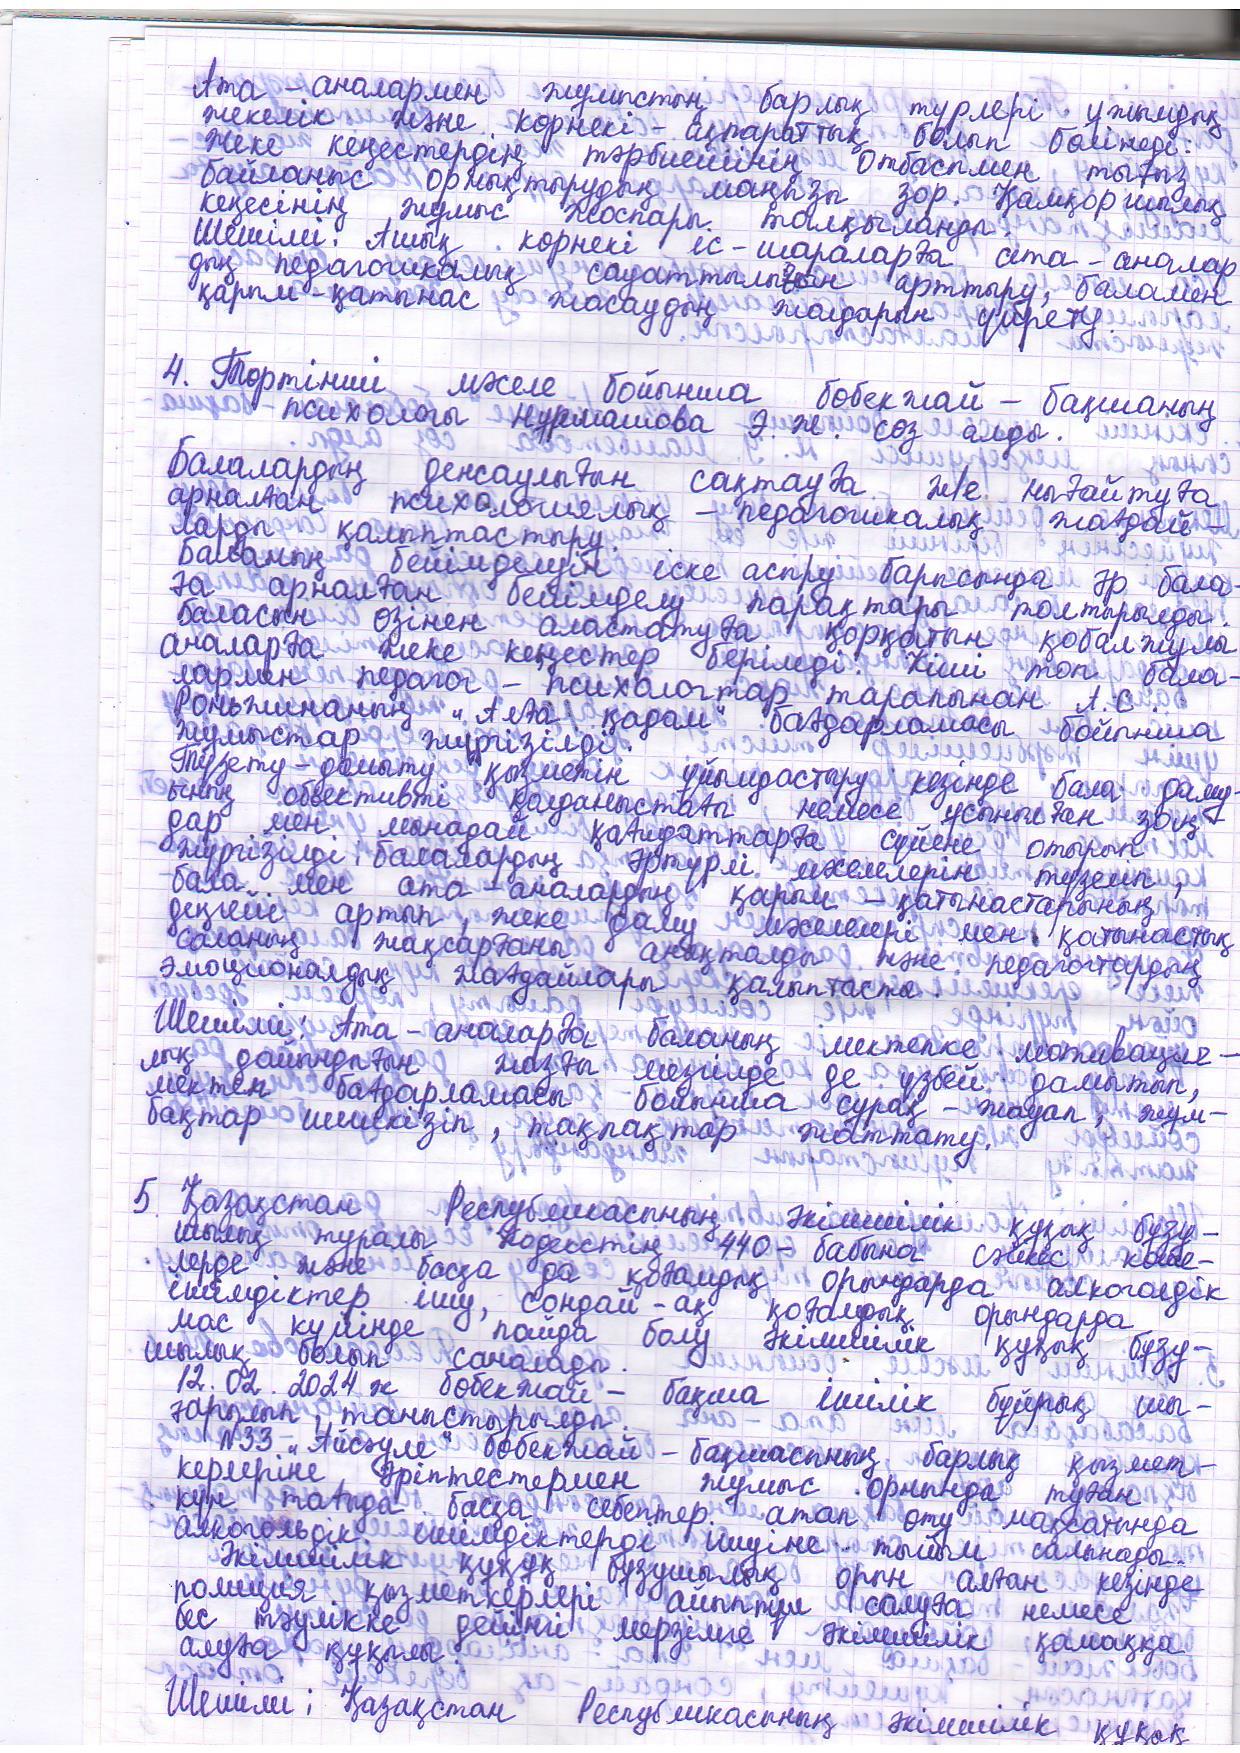 Ата - аналармен жұмыстың барлық түрлері ұжымдық
жекелік және көрнекі - ақпараттық болып бөлінеді.
Жеке кеңестердің тәрбиешінің отбасымен тығыз
байланыс орнықтырудың маңызы зор. Қамқоршылық
кеңесінің жұмыс жоспары талқыланды.
Шешімі: Ашық көрнекі іс-шараларға ата-аналар
дың педагогикалық сауаттылығын арттыру, баламен
қарым-қатынас жасаудың жолдарын үйрету.
4. Төртінші мәселе бойынша бөбекжай - бақшаның
психологы Нурмашова Э.Ж. сөз алды.
Балалардың денсаулығын сақтауға ж/е нығайтуға
арналған психологиялық - педагогикалық жағдай-
ларды қалыптастыру.
Баланың бейімделуін іске асыру барысында әр бала-
ға арналған бейімделу парақтары толтырылды.
Баласын өзінен аластатуға қорқатын қобалжулы
аналарға жеке кеңестер берілді. Кіші топ бала-
лармен педагог - психологтар тарапынан А.С.
Роньжинаның "Алға қадам" бағдарламасы бойынша
жұмыстар жүргізілді.
Түзету - дамыту қызметін ұйымдастыру кезінде бала даму-
ының обьективті қолданыстағы немесе ұсынылған заңт
дар мен мынадай қағидаттарға сүйене отырып
жүргізілді: балалардың әртүрлі мәселелерін түзеліп,
бала мен ата-аналардың қарым - қатынастарының
деңгейі артып, жеке даму мәселелері мен қатынастық
саланың жақсарғаны анықталды және педагогтардың
эмоционалдық жағдайлары қалыптасты.
Шешімі: Ата-аналарға, баланың мектепке мотивация-
лық дайындығын жазғы мезгілде де үзбей дамытып,
мектеп бағдарламасы бойынша сұрақ - жауап, жұм-
бақтар шешкізіп, тақпақтар жаттату.
5 Қазақстан Республикасының әкімшілік құқық бұзу-
шылық туралы Кодекстің 440 - бабына сәйкес көше-
лерде және басқа да қоғамдық орындарда алкоголдік
ішімдіктер ішу, сондай-ақ қоғамдық орындарда
мас күйінде пайда болу әкімшілік құқық бұзу-
шылық болып саналады.
12.02.2024 ж бөбекжай - бақша ішілік бұйрық шы-
ғарылып, таныстырылды
№33 "Айсәуле" бөбекжай - бақшасының барлық қызмет-
керлеріне әріптестермен жұмыс орнында туған
күн тағыда басқа себептер атап өту мақсатында
алкогольдік ішімдіктерді ішуіне тыйым салынады.
Әкімшілік құқық бұзушылық орын алған кезінде
полиция қызметкерлері айыппұл салуға немесе
бес тәулікке дейінгі мерзімге әкімшілік қамаққа
алуға құқылы.
Шешімі; Қазақстан Республикасының әкімшілік құқық